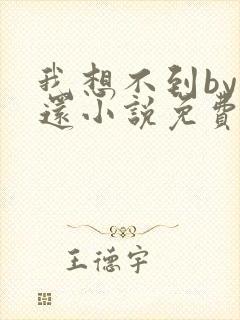 我想不到by
還小說免費
王德宇